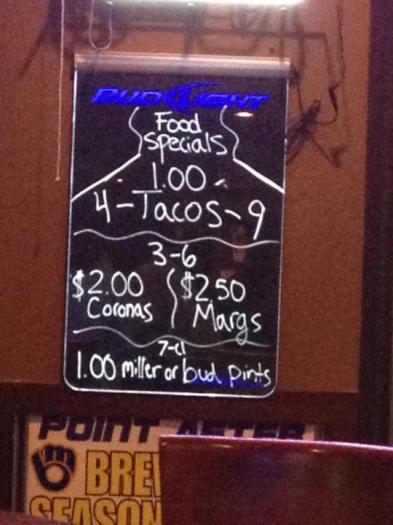 BUD LIGHT
Food
specials
1.00
4-Tacos-9
3-6
$2.00 $2.50
Coronas Margs
7-cl
1.00 miller or bud pints
POINT AFTER
BRE
SEASON